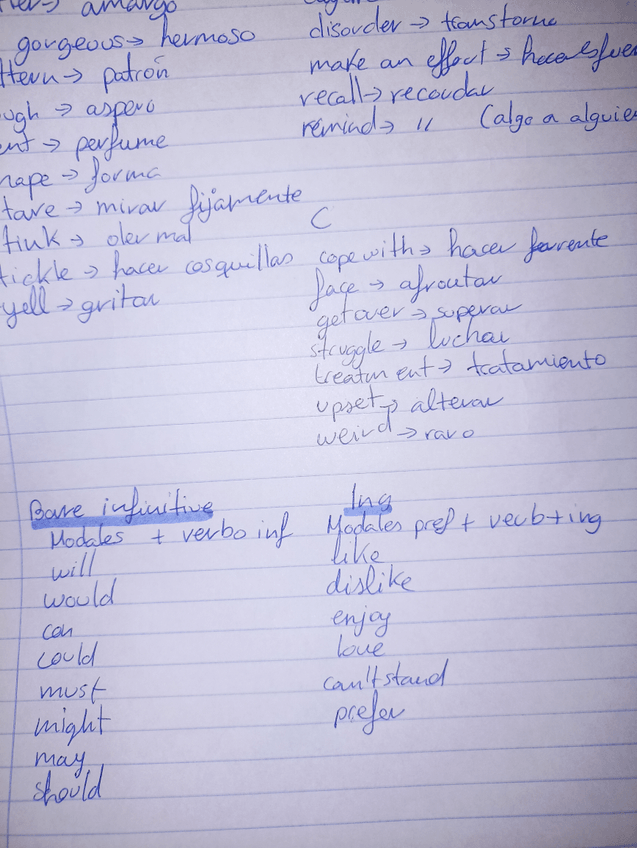 amargo
gorgeous → hermoso
→ patrón
→ aspero
→ perfume
→ forma
→ mirar fijamente
→ oler mal
tickle → hacer cosquillas
yell → gritar
disorder → transtorno
make an effort →
recall → recordar
remind → " (algo a
C
cope with → hacer frente
face → afrontar
get over → superar
struggle → luchar
treatment → tratamiento
upset → alterar
weird → raro
Bare infinitive
Modales + verbo inf
will
would
can
could
must
might
may
should
Ing
Modales pref + verb+ing
like
dislike
enjoy
love
can't stand
prefer